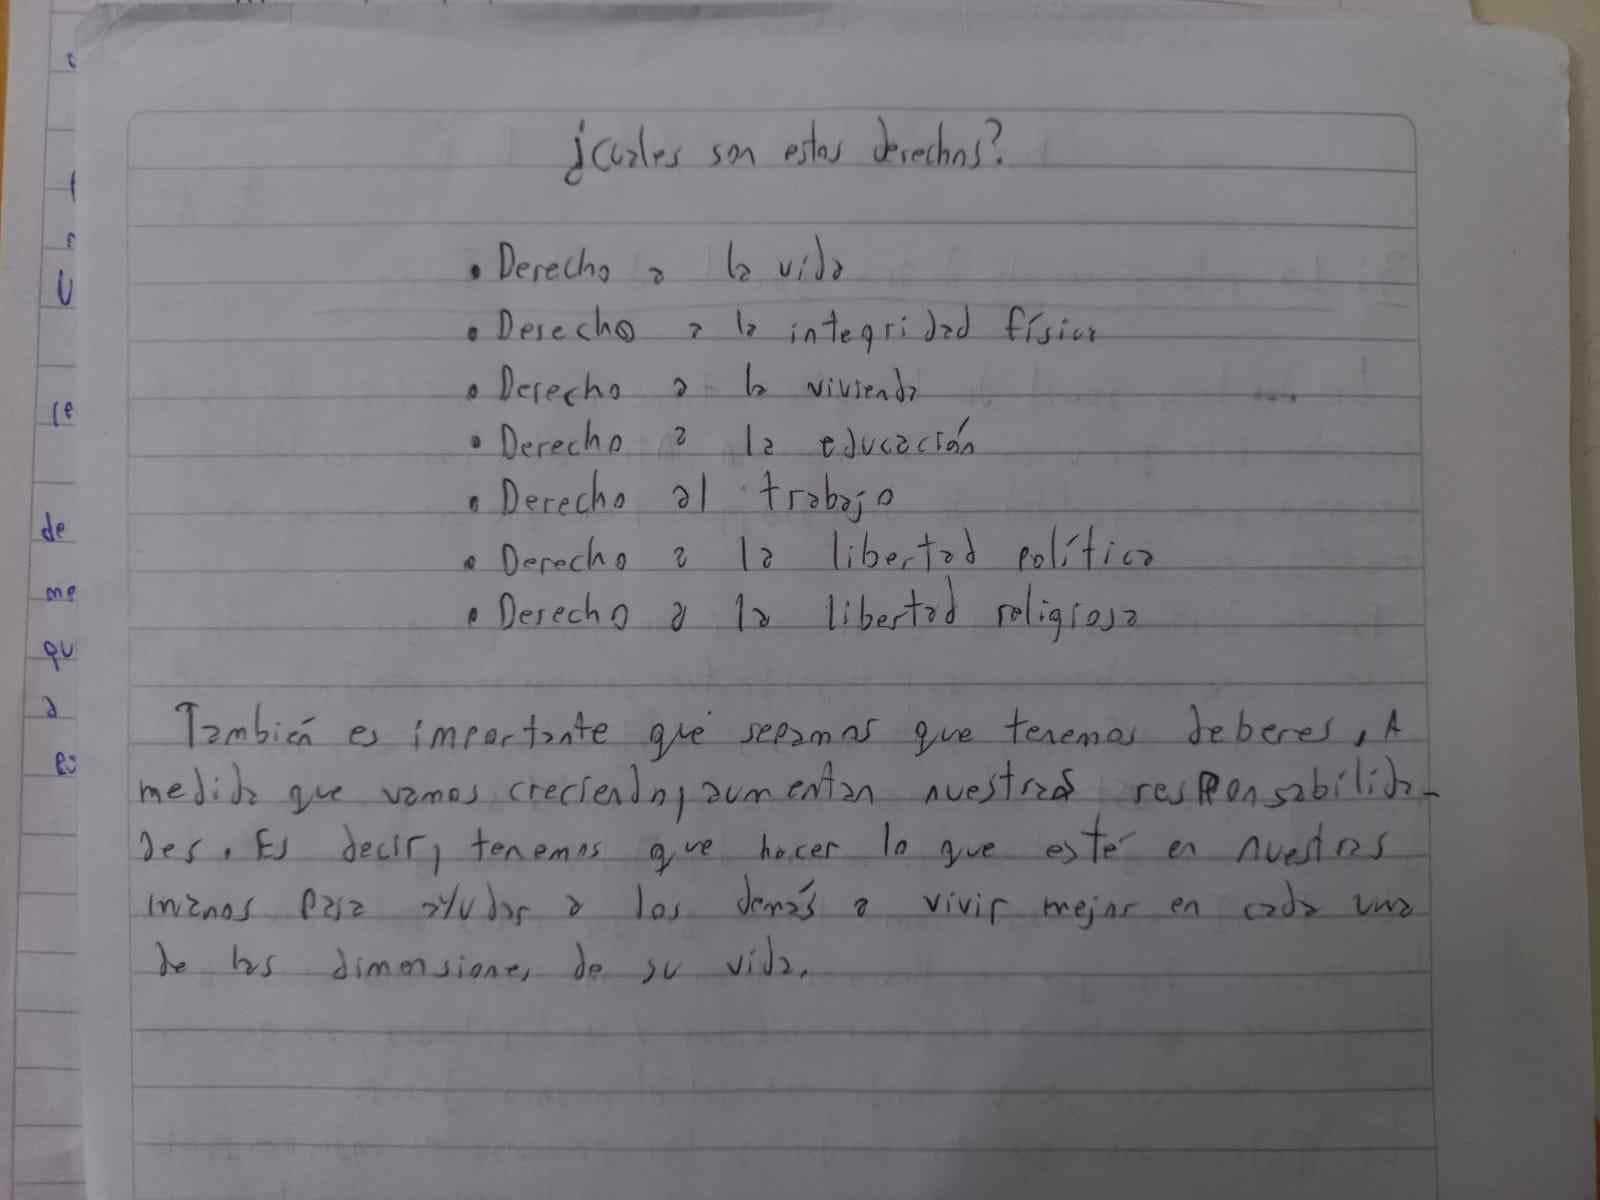 ¿Cuales son estos derechos?
• Derecho a la vida
• Derecho a la integridad física
• Derecho a la vivienda
• Derecho a la educación
• Derecho al trabajo
• Derecho a la libertad política
• Derecho a la libertad religiosa
También es importante que sepamos que tenemos deberes, A
medida que vamos creciendo, aumentan nuestras responsabilida-
des. Es decir, tenemos que hacer lo que esté en nuestras
manos para ayudar a los demás a vivir mejor en cada una
de las dimensiones de su vida.
de
me
qu
a